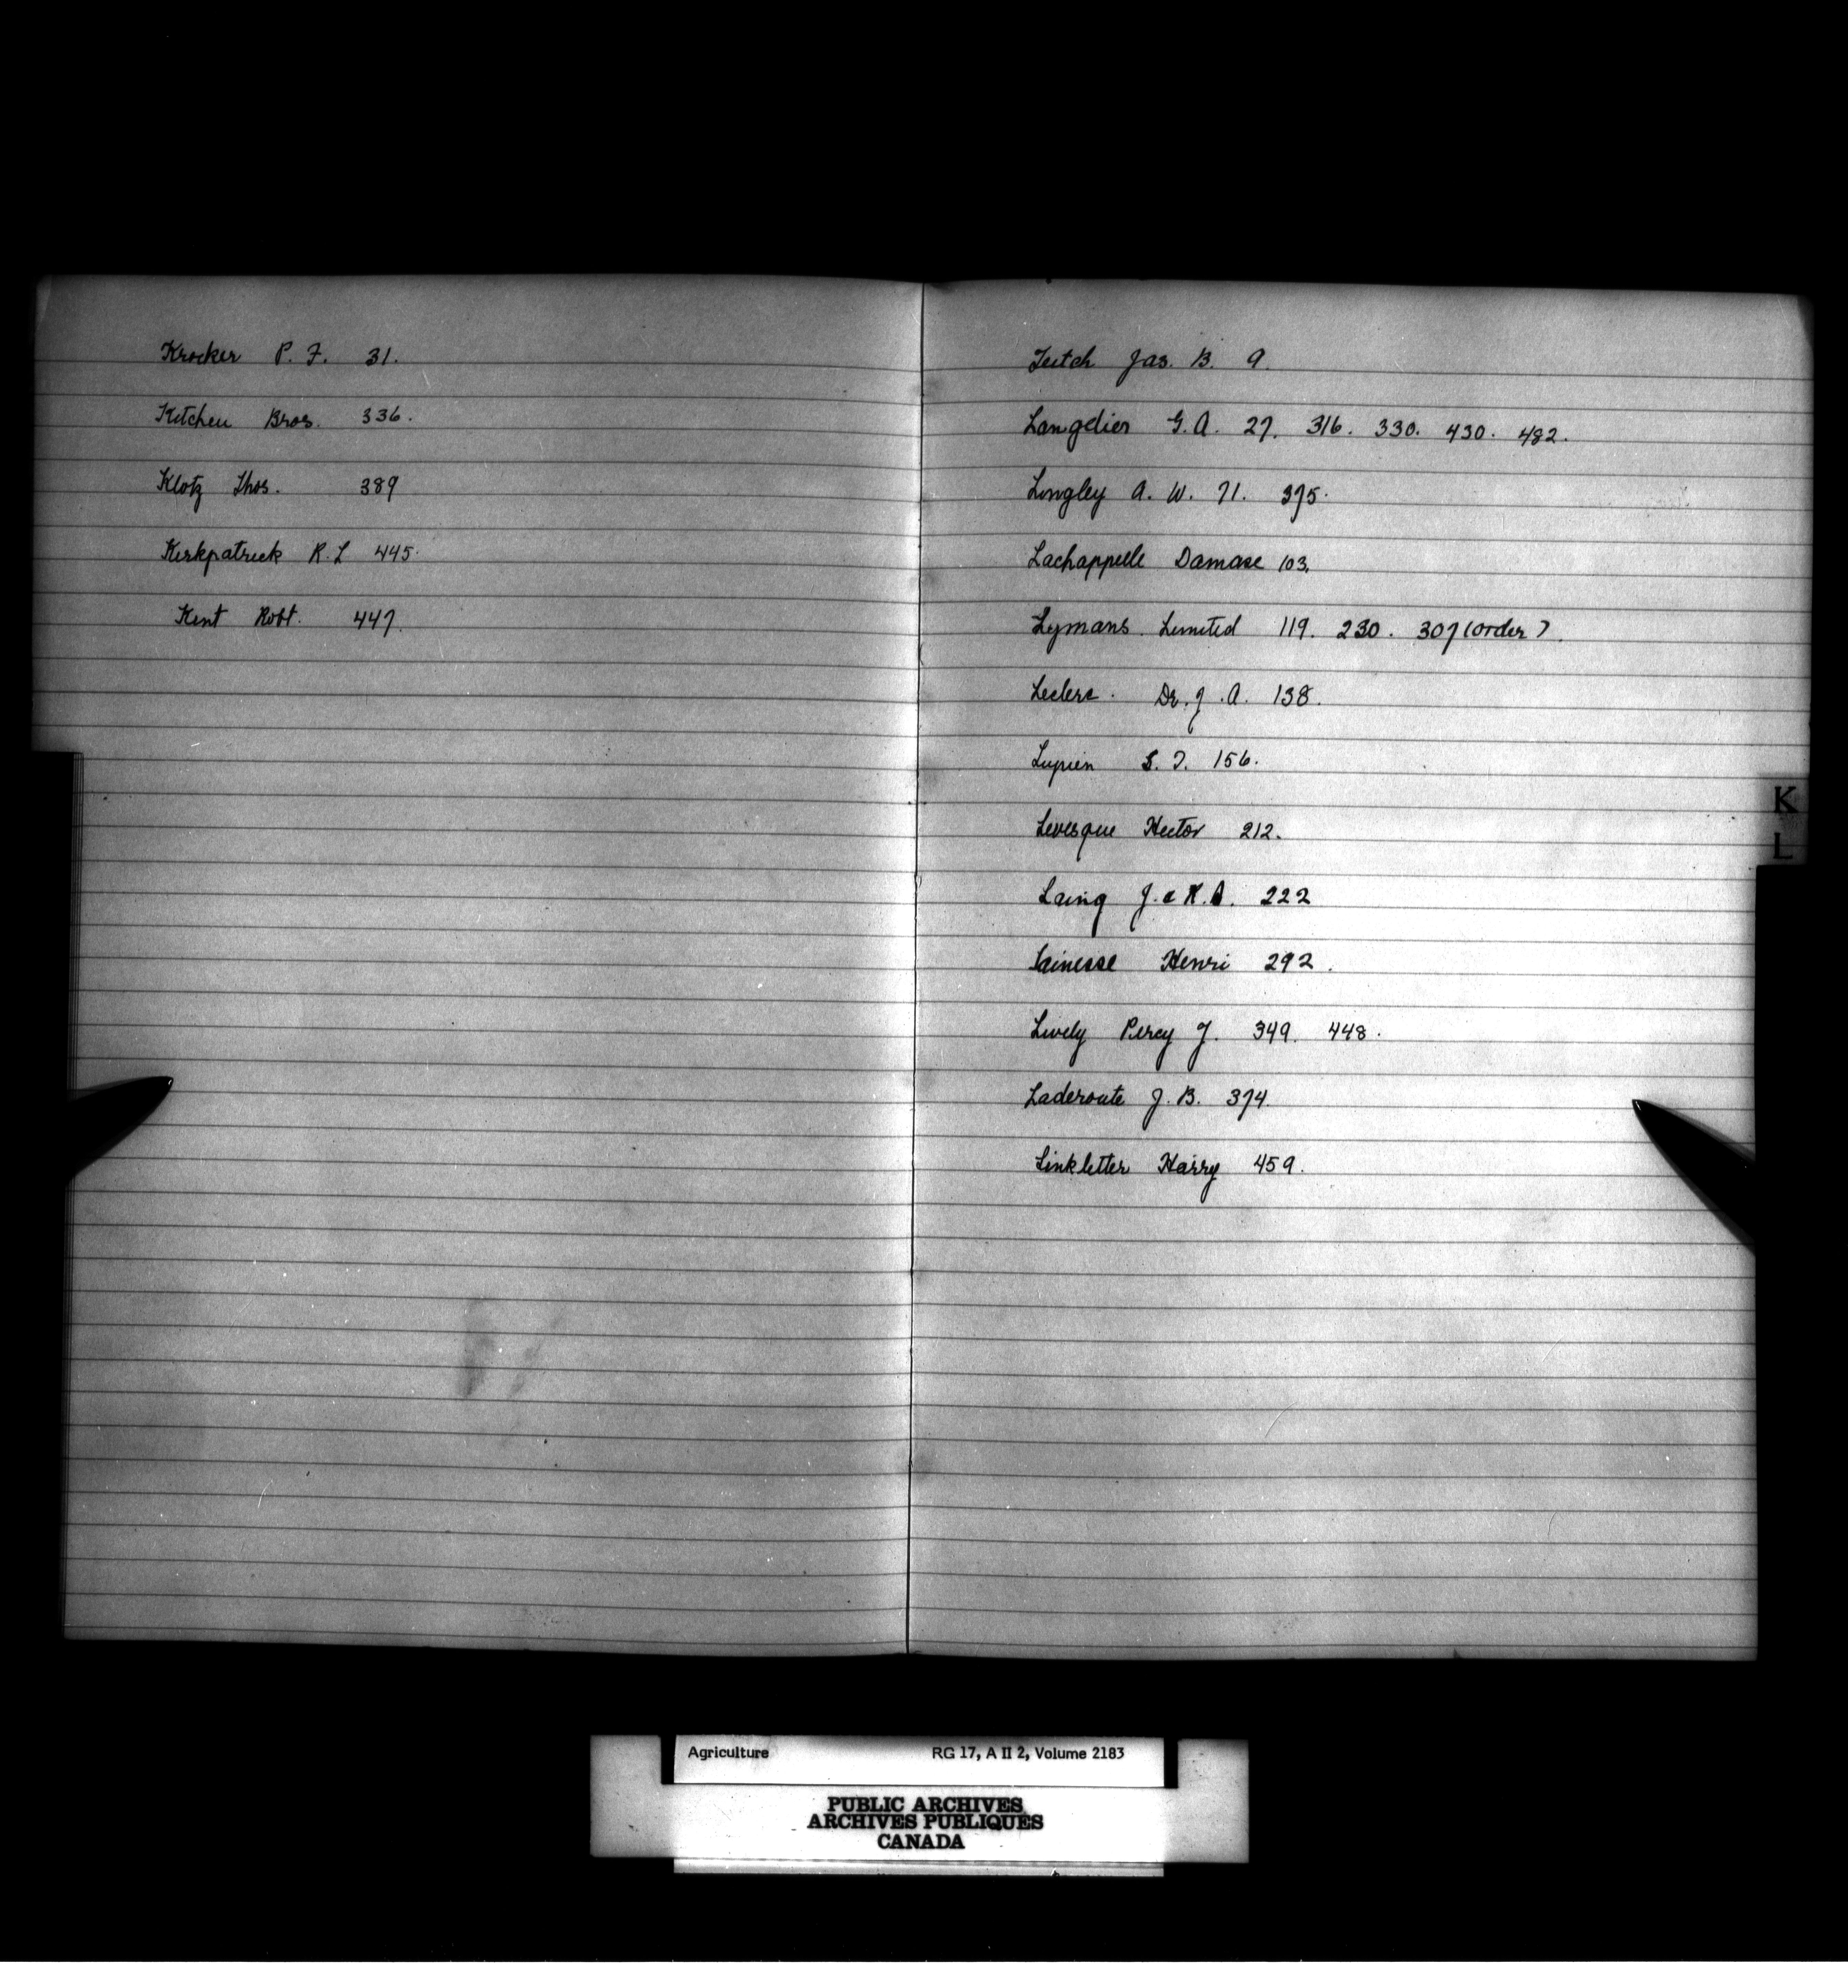 Krocker P. F. 31.
Kitchen Bros. 336.
Klotz Thos. 389
Kirkpatrick R. L 445.
Kent Robt. 447.
Leitch Jas. B. 9.
Langelier G. A. 27. 316. 330. 430. 482.
Lingley A. W. 71. 375.
Lachappelle Damase 103.
Lymans Limited 119. 230. 307 (order).
Leclerc. Dr. J. A. 138.
Lupien 156.
Levesque Hector 212.
Laing J. & R. A. 222
Lainesse Henri 292.
Lively Percy J. 349. 448.
Laderoute J. B. 374.
Linkletter Harry 459.
K
L
Agriculture RG 17, A II 2, Volume 2183
PUBLIC ARCHIVES
ARCHIVES PUBLIQUES
CANADA